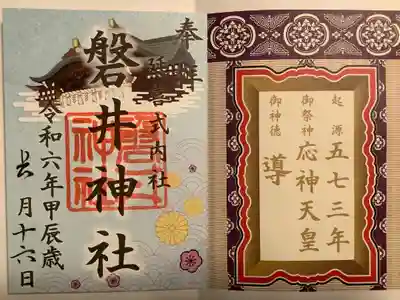 奉拝
延喜式内社
磐井神社
磐井
神社
令和六年甲辰歳
長月十六日
起源 五七三年
御祭神 応神天皇
御神徳 導